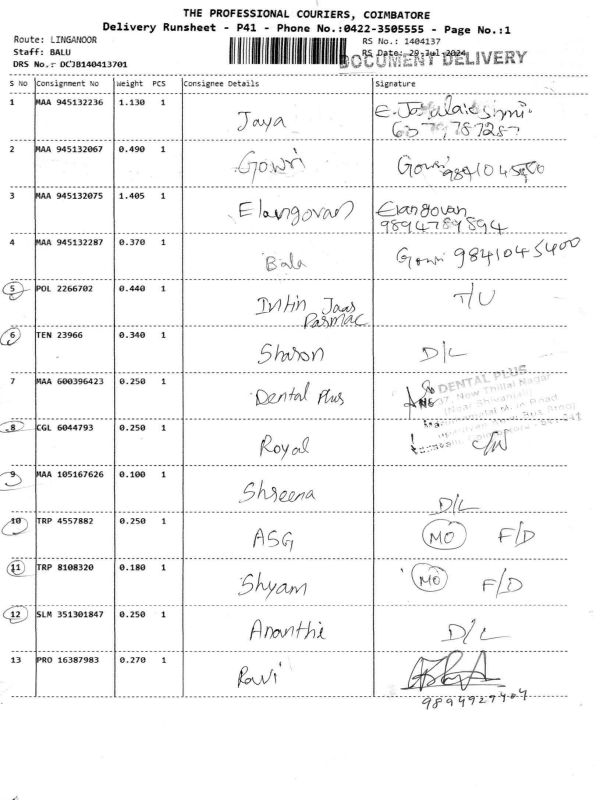 THE PROFESSIONAL COURIERS, COIMBATORE
Delivery Runsheet - P41 - Phone No.:0422-3505555 - Page No.:1
Route: LINGANOOR RS No.: 1404137
Staff: BALU RS Date: 29-Jul-2024
DOCUMENT DELIVERY
DRS No.: OCJB140413701
S No Consignment No Weight PCS Consignee Details Signature
1 MAA 945132236 1.130 1 Jaya
2 MAA 945132067 0.490 1 Gowri Gowri
3 MAA 945132075 1.405 1 Elangovan Elangovan
9894789894
4 MAA 945132287 0.370 1 Bala Gowri 9841045400
5 POL 2266702 0.440 1 Jaas T/U
6 TEN 23966 0.340 1 Sharon D/L
7 MAA 600396423 0.250 1 Dental Plus DENTAL PLUS
New Thillai Nagar
8 CGL 6044793 0.250 1 Royal
9 MAA 105167626 0.100 1 Shreena D/L
10 TRP 4557882 0.250 1 ASG MO F/D
11 TRP 8108320 0.180 1 Shyam MO F/D
12 SLM 351301847 0.250 1 Ananthi D/L
13 PRO 16387983 0.270 1 Ravi
9894929404